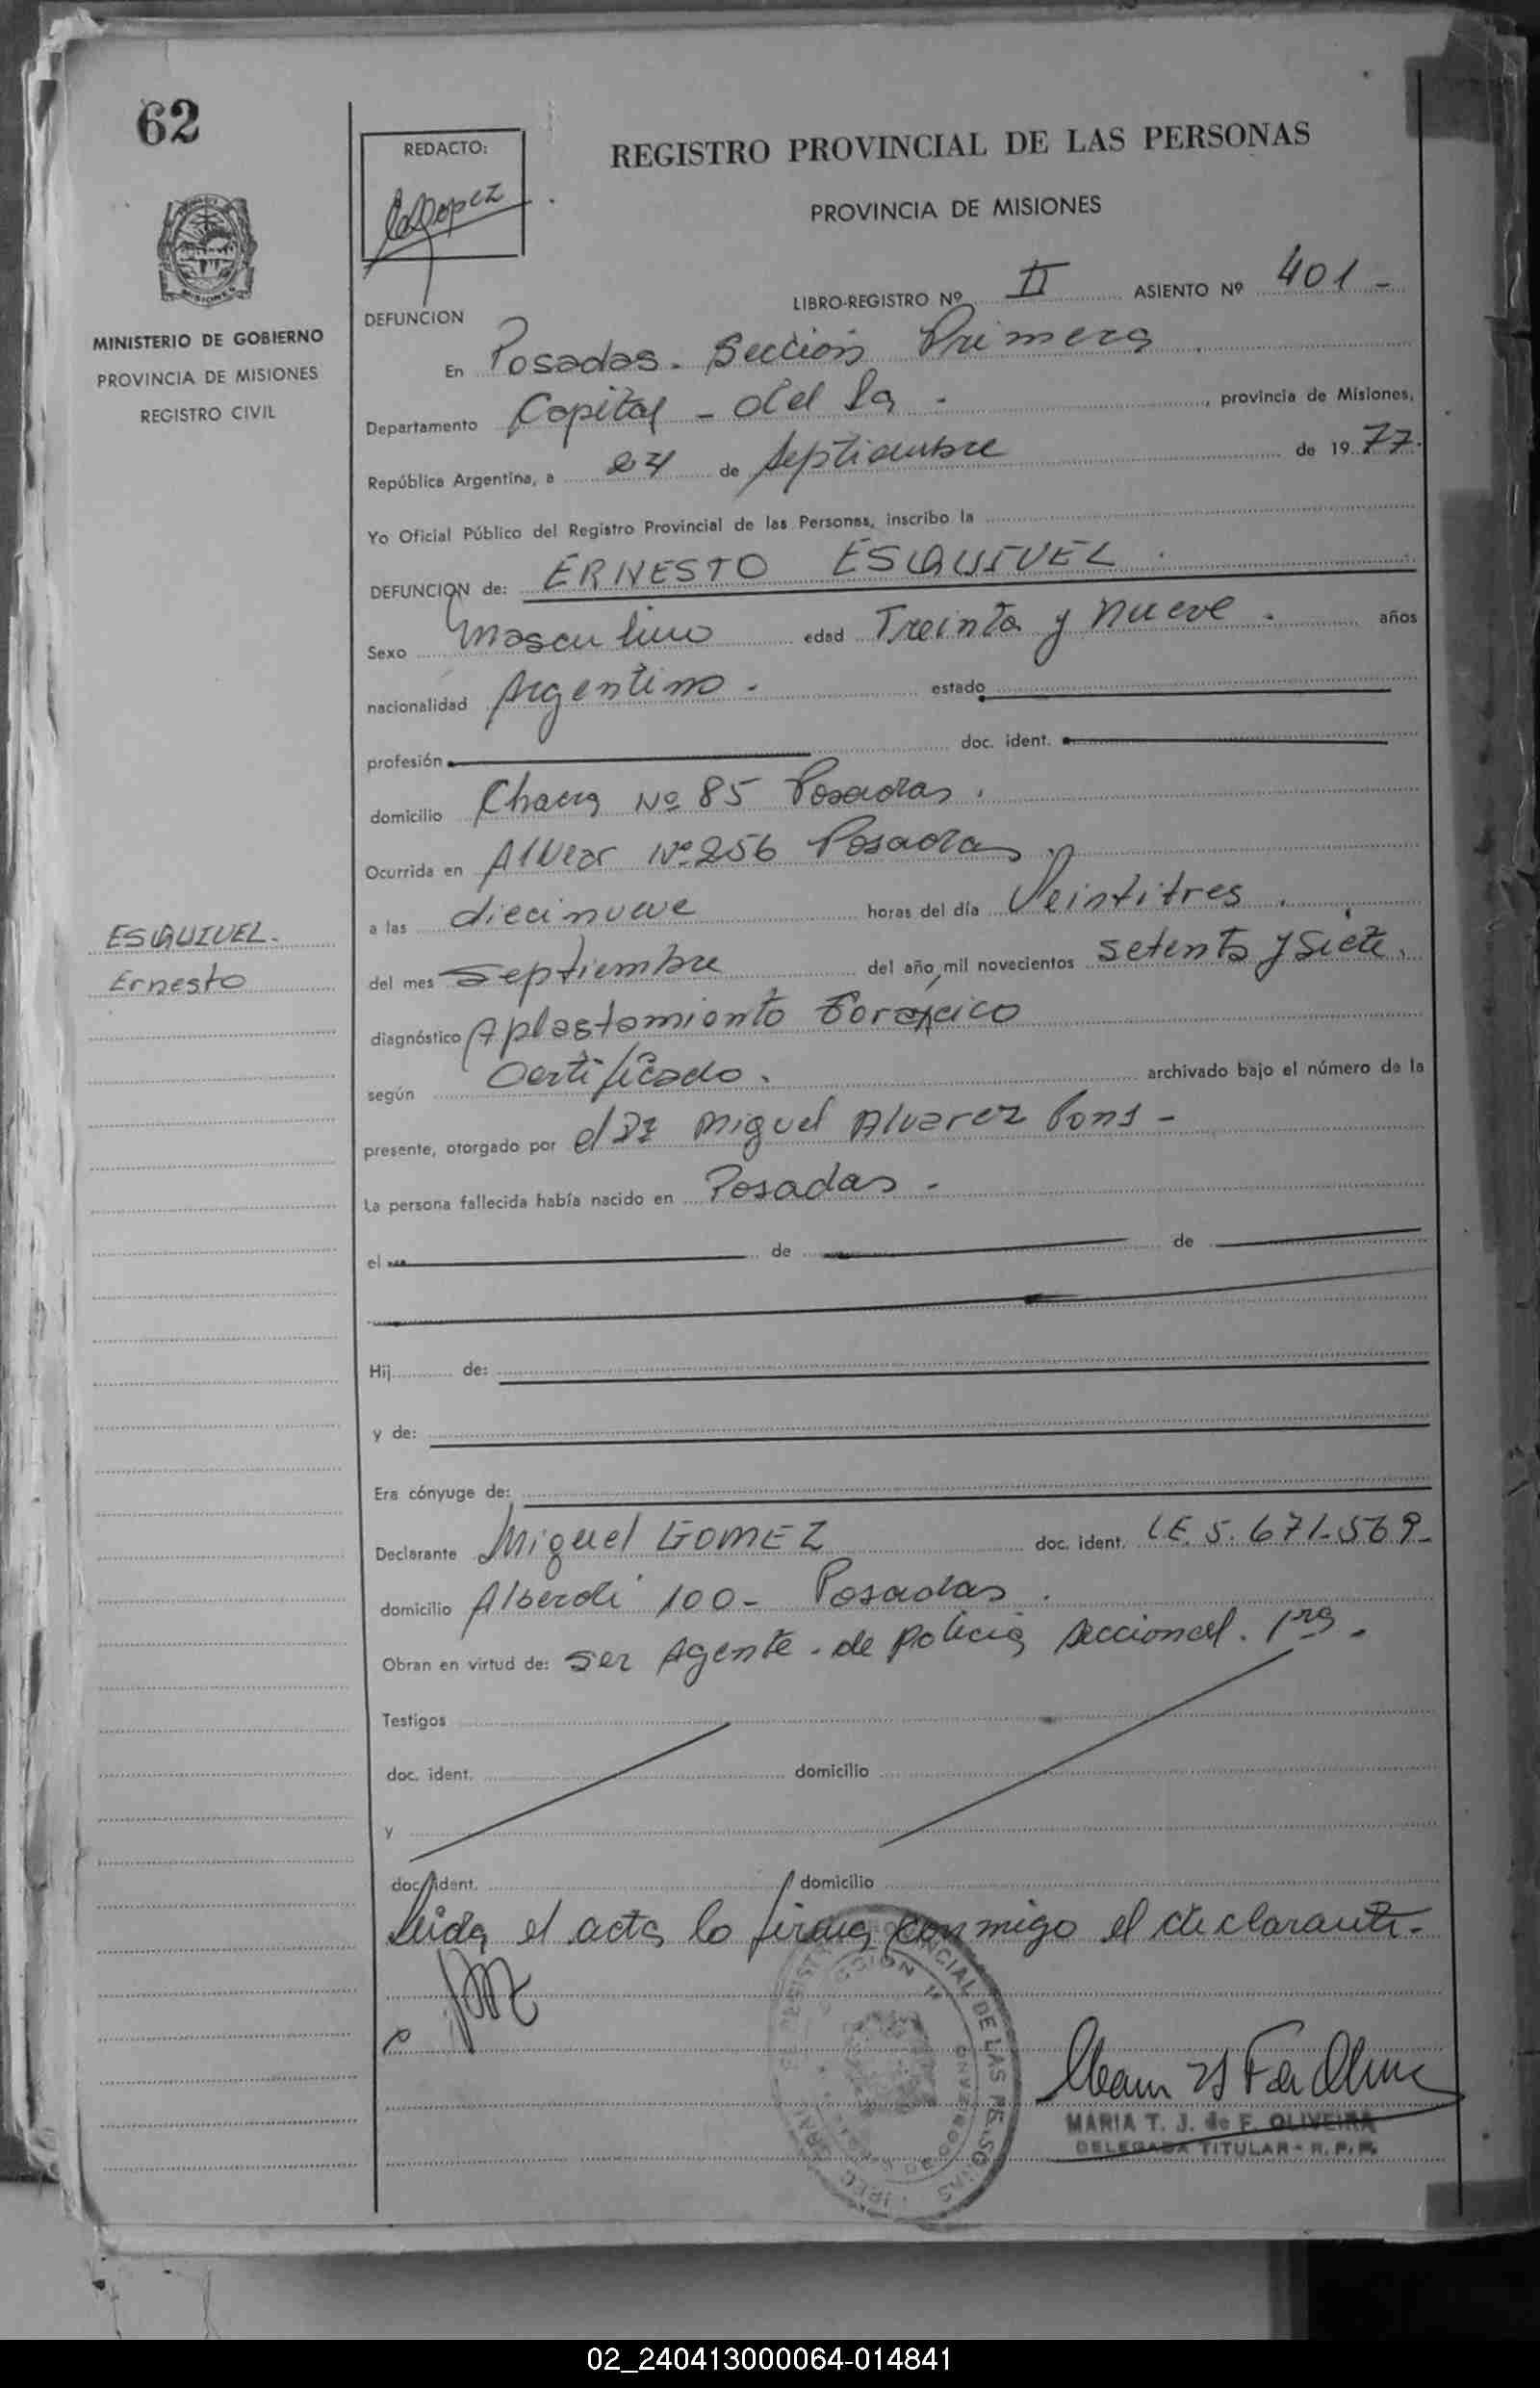 62
REDACTO:
REGISTRO PROVINCIAL DE LAS PERSONAS
PROVINCIA DE MISIONES
MISIONES
MINISTERIO DE GOBIERNO
PROVINCIA DE MISIONES
REGISTRO CIVIL
LIBRO-REGISTRO Nº II ASIENTO Nº 401 -
DEFUNCION
En Posadas. Sección Primera
Departamento Capital - del la - , provincia de Misiones,
República Argentina, a 24 de Septiembre de 1977.
Yo Oficial Público del Registro Provincial de las Personas, inscribo la
DEFUNCION de: ERNESTO ESQUIVEL.
Sexo masculino edad Treinta y nueve. años
nacionalidad Argentino. estado
profesión doc. ident.
domicilio Chacra Nº 85 Posadas.
Ocurrida en Alvear Nº 256 Posadas.
a las diecinueve horas del día Veintitres.
ESQUIVEL.
Ernesto
del mes Septiembre del año mil novecientos setenta y siete.
diagnóstico Aplastamiento Toraxcico
según Certificado. archivado bajo el número de la
presente, otorgado por el Dr Miguel Alvarez Pons -
La persona fallecida había nacido en Posadas -
el de de
Hij de:
y de:
Era cónyuge de:
Declarante Miguel GOMEZ doc. ident. L.E. 5.671.569-
domicilio Alberdi 100- Posadas.
Obran en virtud de: ser Agente - de Policia seccional. 1ra.
Testigos
doc. ident. domicilio
y
doc. ident. domicilio
Leida el acta lo firma conmigo el declarante.
MARIA T. J. de F. OLIVEIRA
DELEGADA TITULAR - R. P. P.
02_240413000064-014841